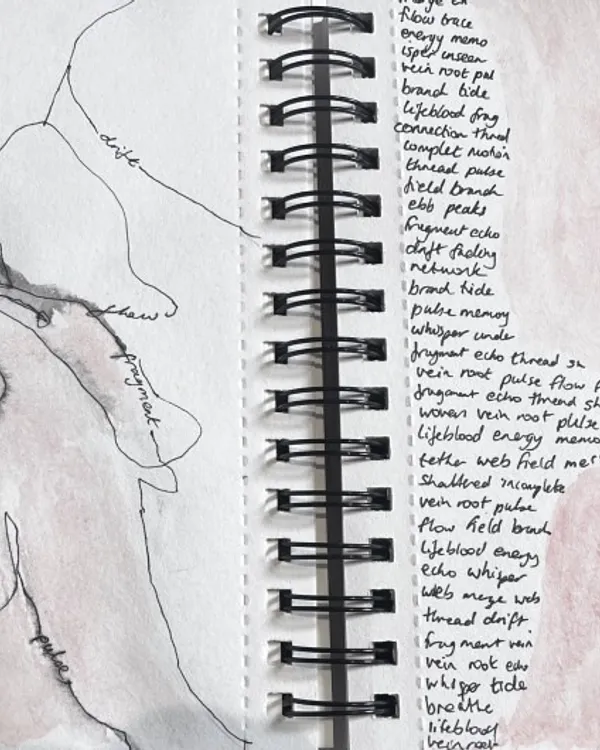 drift
fragment
pulse
flow trace
energy memo
isper unseen
vein root pul
brand tide
lifeblood frag
connection thred
complet motion
thread pulse
field branch
ebb peaks
fragment echo
drift fading
network
brand tide
pulse memory
whisper unde
fragment echo thread sh
vein root pulse flow f
fragment echo thread sh
woven vein root pulse
lifeblood energy memo
tether web field me
shattered incomplete
vein root pulse
flow field branch
lifeblood energy
echo whisper
web merge web
thread drift
fragment vein
vein root echo
whisper tide
breathe
lifeblood